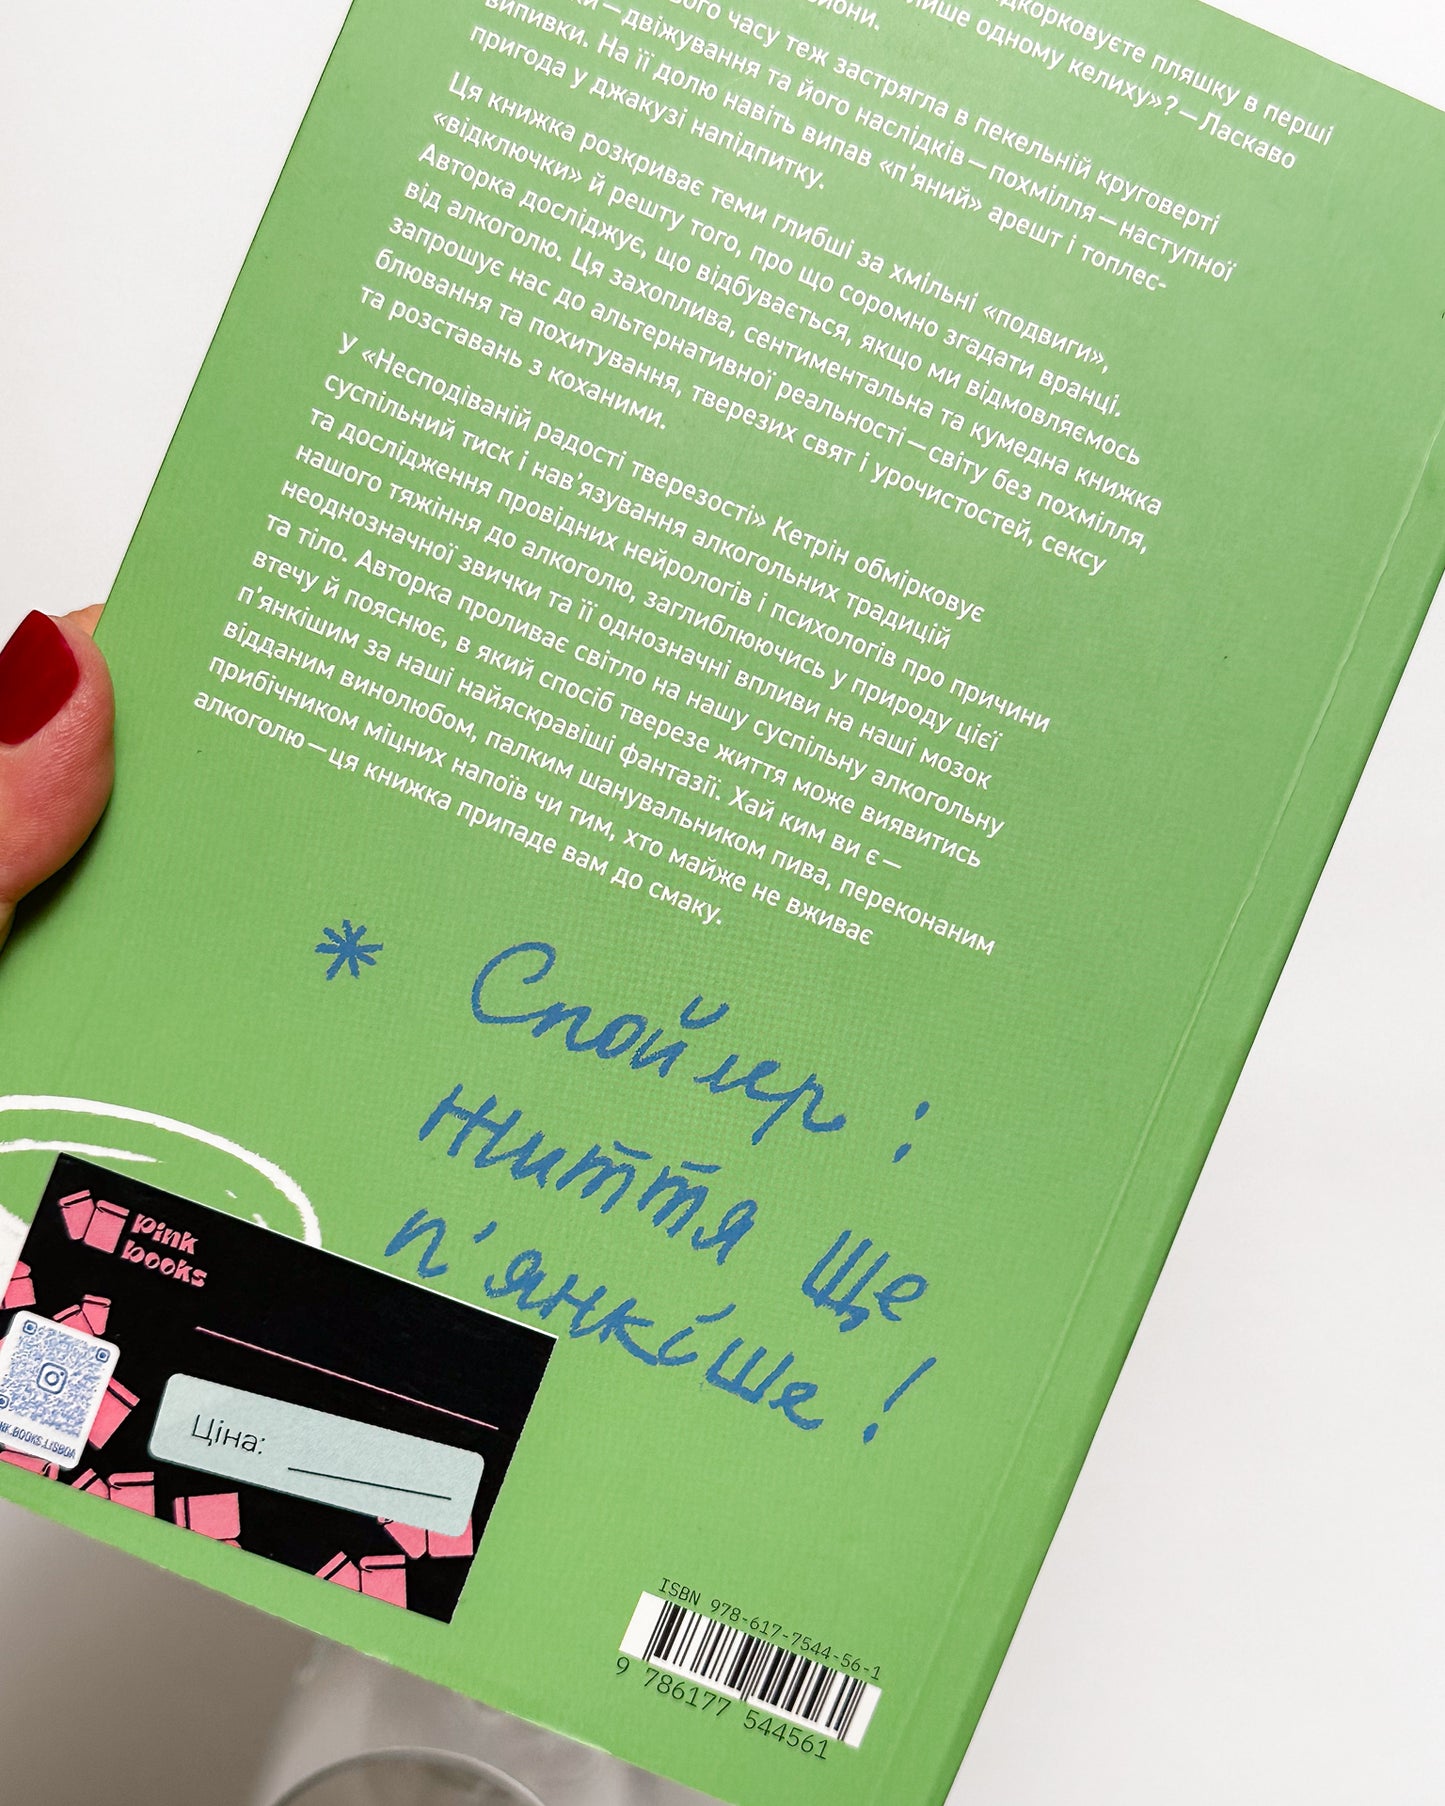 дкорковуєте пляшку в перші
лише одному келиху»? — Ласкаво
часу теж застрягла в пекельній круговерті
— двіжування та його наслідків — похмілля — наступної
випивки. На її долю навіть випав «п'яний» арешт і топлес-
пригода у джакузі напідпитку.
Ця книжка розкриває теми глибші за хмільні «подвиги»,
«відключки» й решту того, про що соромно згадати вранці.
Авторка досліджує, що відбувається, якщо ми відмовляємось
від алкоголю. Ця захоплива, сентиментальна та кумедна книжка
запрошує нас до альтернативної реальності — світу без похмілля,
блювання та похитування, тверезих свят і урочистостей, сексу
та розставань з коханими.
У «Несподіваній радості тверезості» Кетрін обмірковує
суспільний тиск і нав'язування алкогольних традицій
та дослідження провідних нейрологів і психологів про причини
нашого тяжіння до алкоголю, заглиблюючись у природу цієї
неоднозначної звички та її однозначні впливи на наші мозок
та тіло. Авторка проливає світло на нашу суспільну алкогольну
втечу й пояснює, в який спосіб тверезе життя може виявитись
п'янкішим за наші найяскравіші фантазії. Хай ким ви є —
відданим винолюбом, палким шанувальником пива, переконаним
прибічником міцних напоїв чи тим, хто майже не вживає
алкоголю — ця книжка припаде вам до смаку.
* Спойлер:
життя ще
п'янкіше!
pink
books
NK.BOOKS.LISBOA
Ціна:
ISBN 978-617-7544-56-1
9 786177 544561